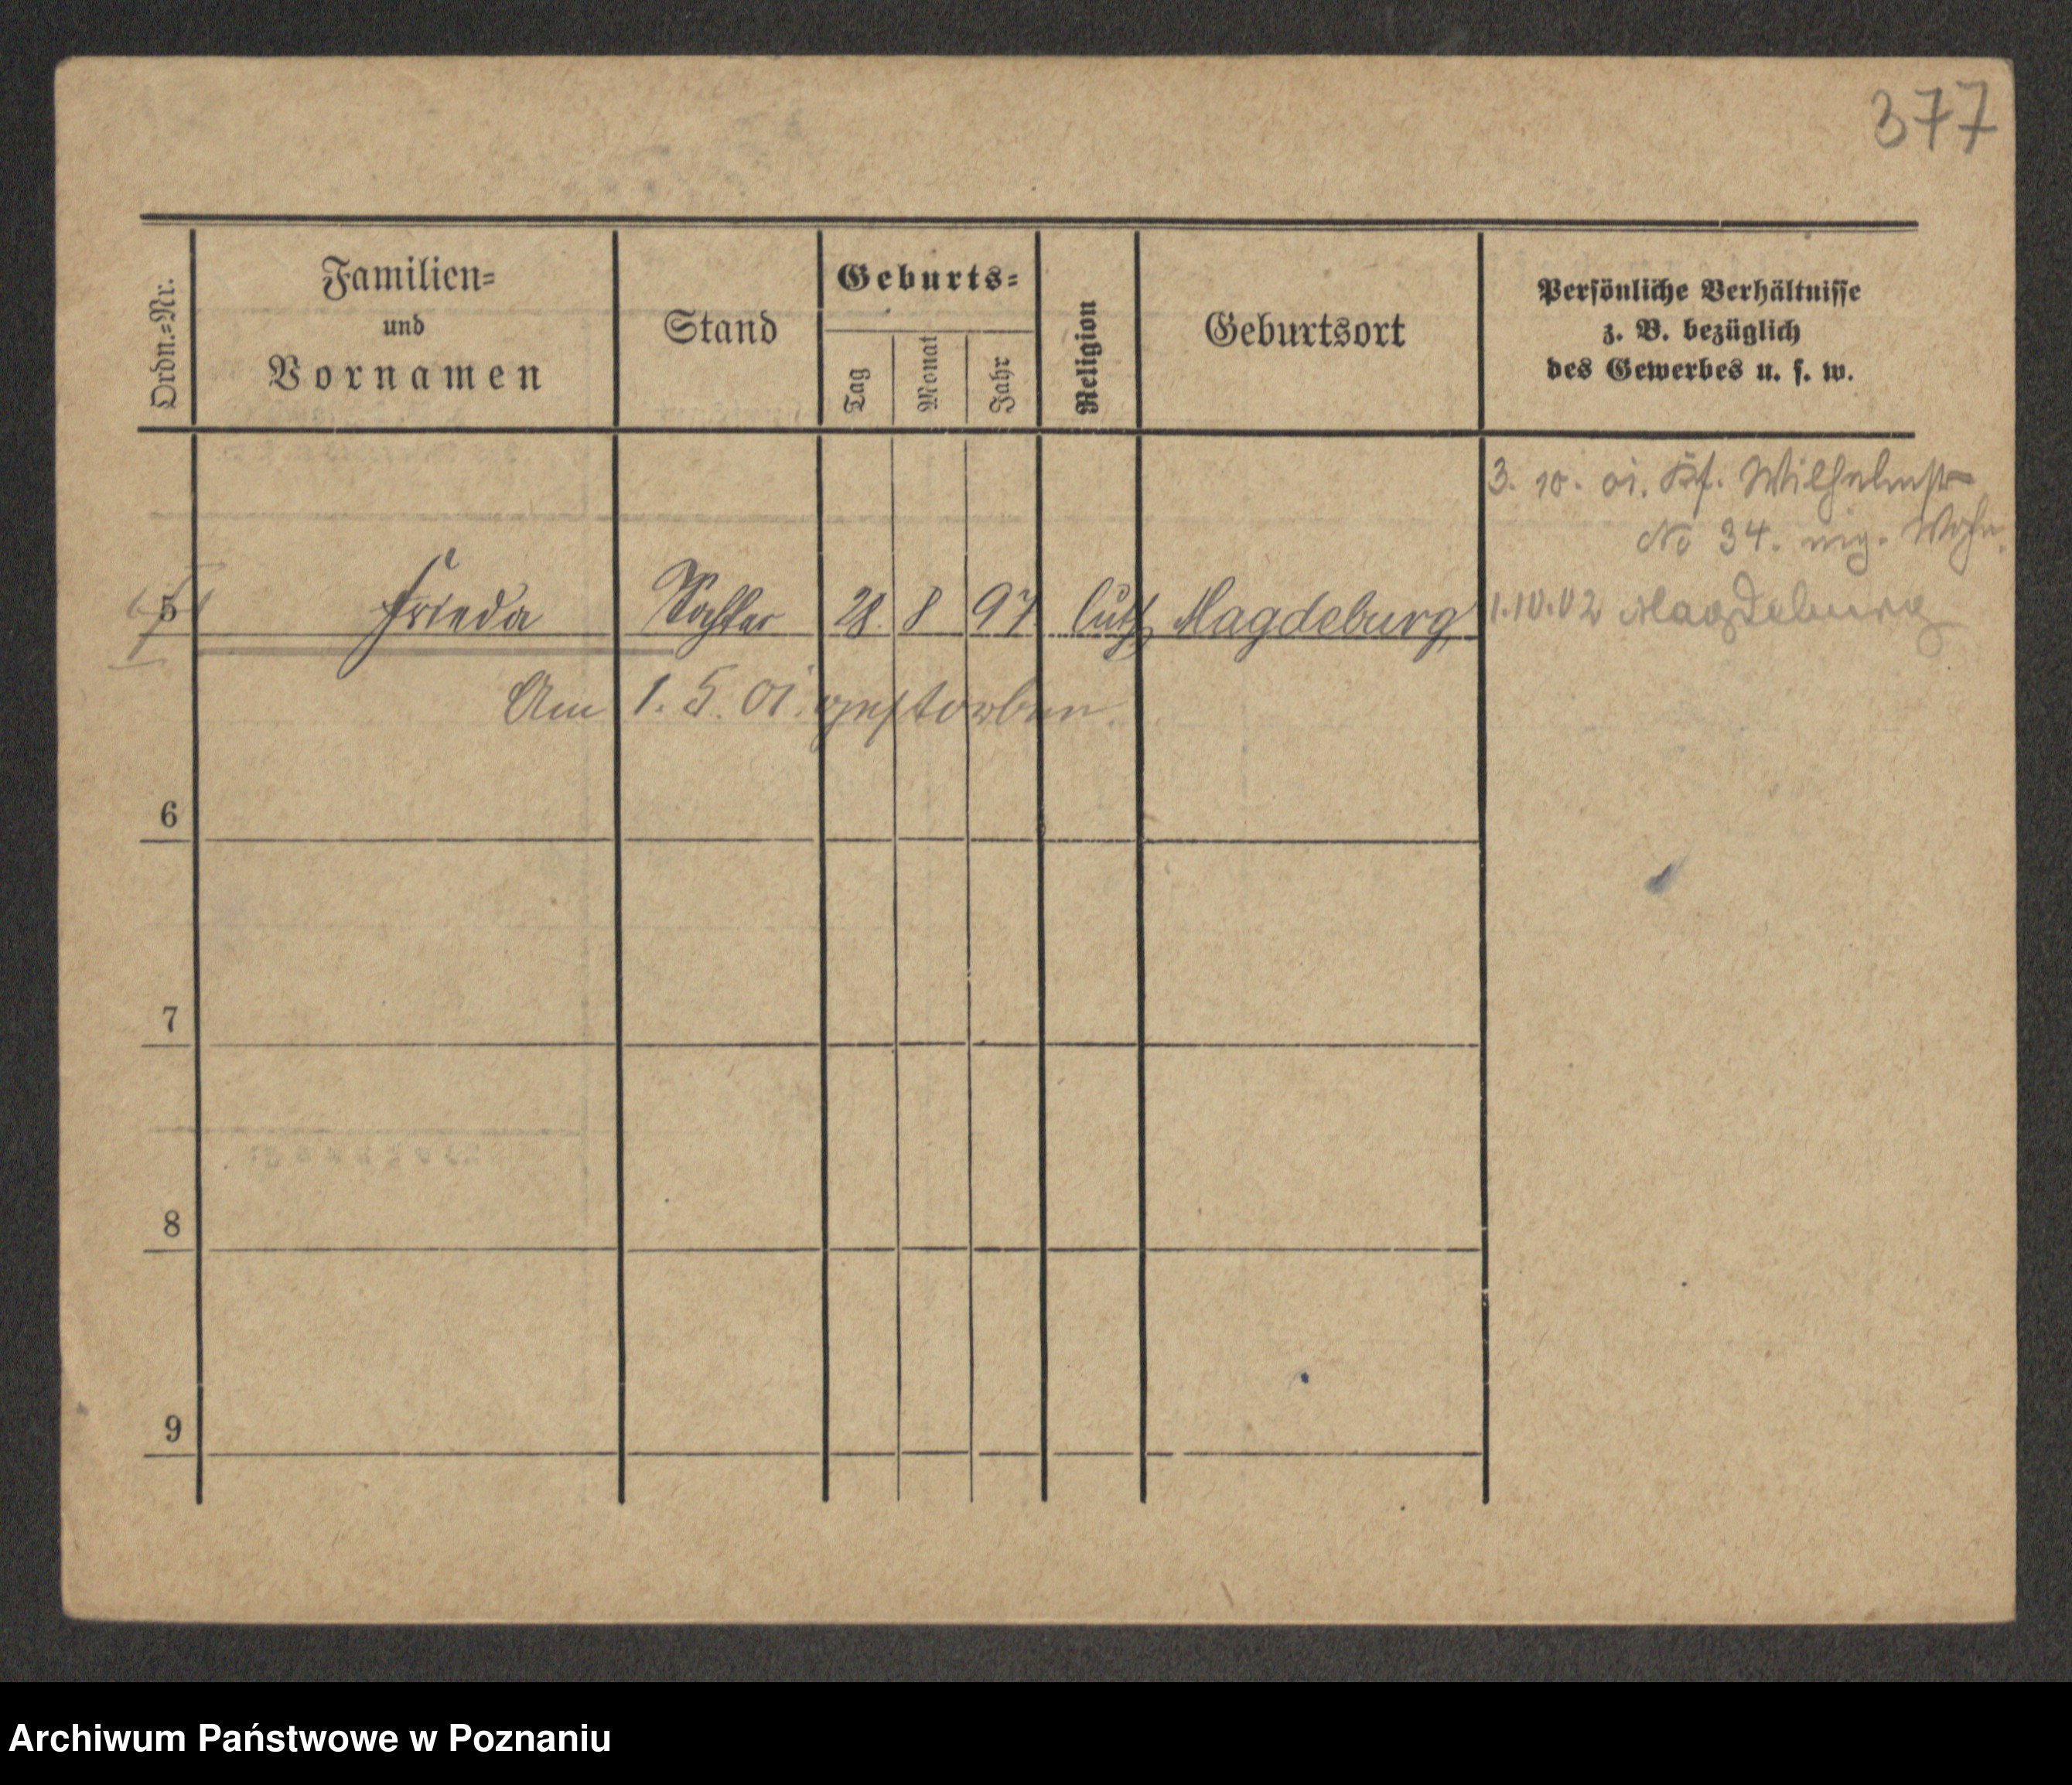 377
Ordn.=Nr.
Familien=
und
Vornamen
Stand
Geburts=
Tag
Monat
Jahr
Religion
Geburtsort
Persönliche Verhältnisse
z. B. bezüglich
des Gewerbes u. s. w.
3. 10. 01. Wilhelmstr
No 34. Wohn.
5 Frieda Tochter 28. 8 97 luth Magdeburg 1.10.02 Magdeburg
Am 1. 5. 01. gestorben.
6
7
8
9
Archiwum Państwowe w Poznaniu